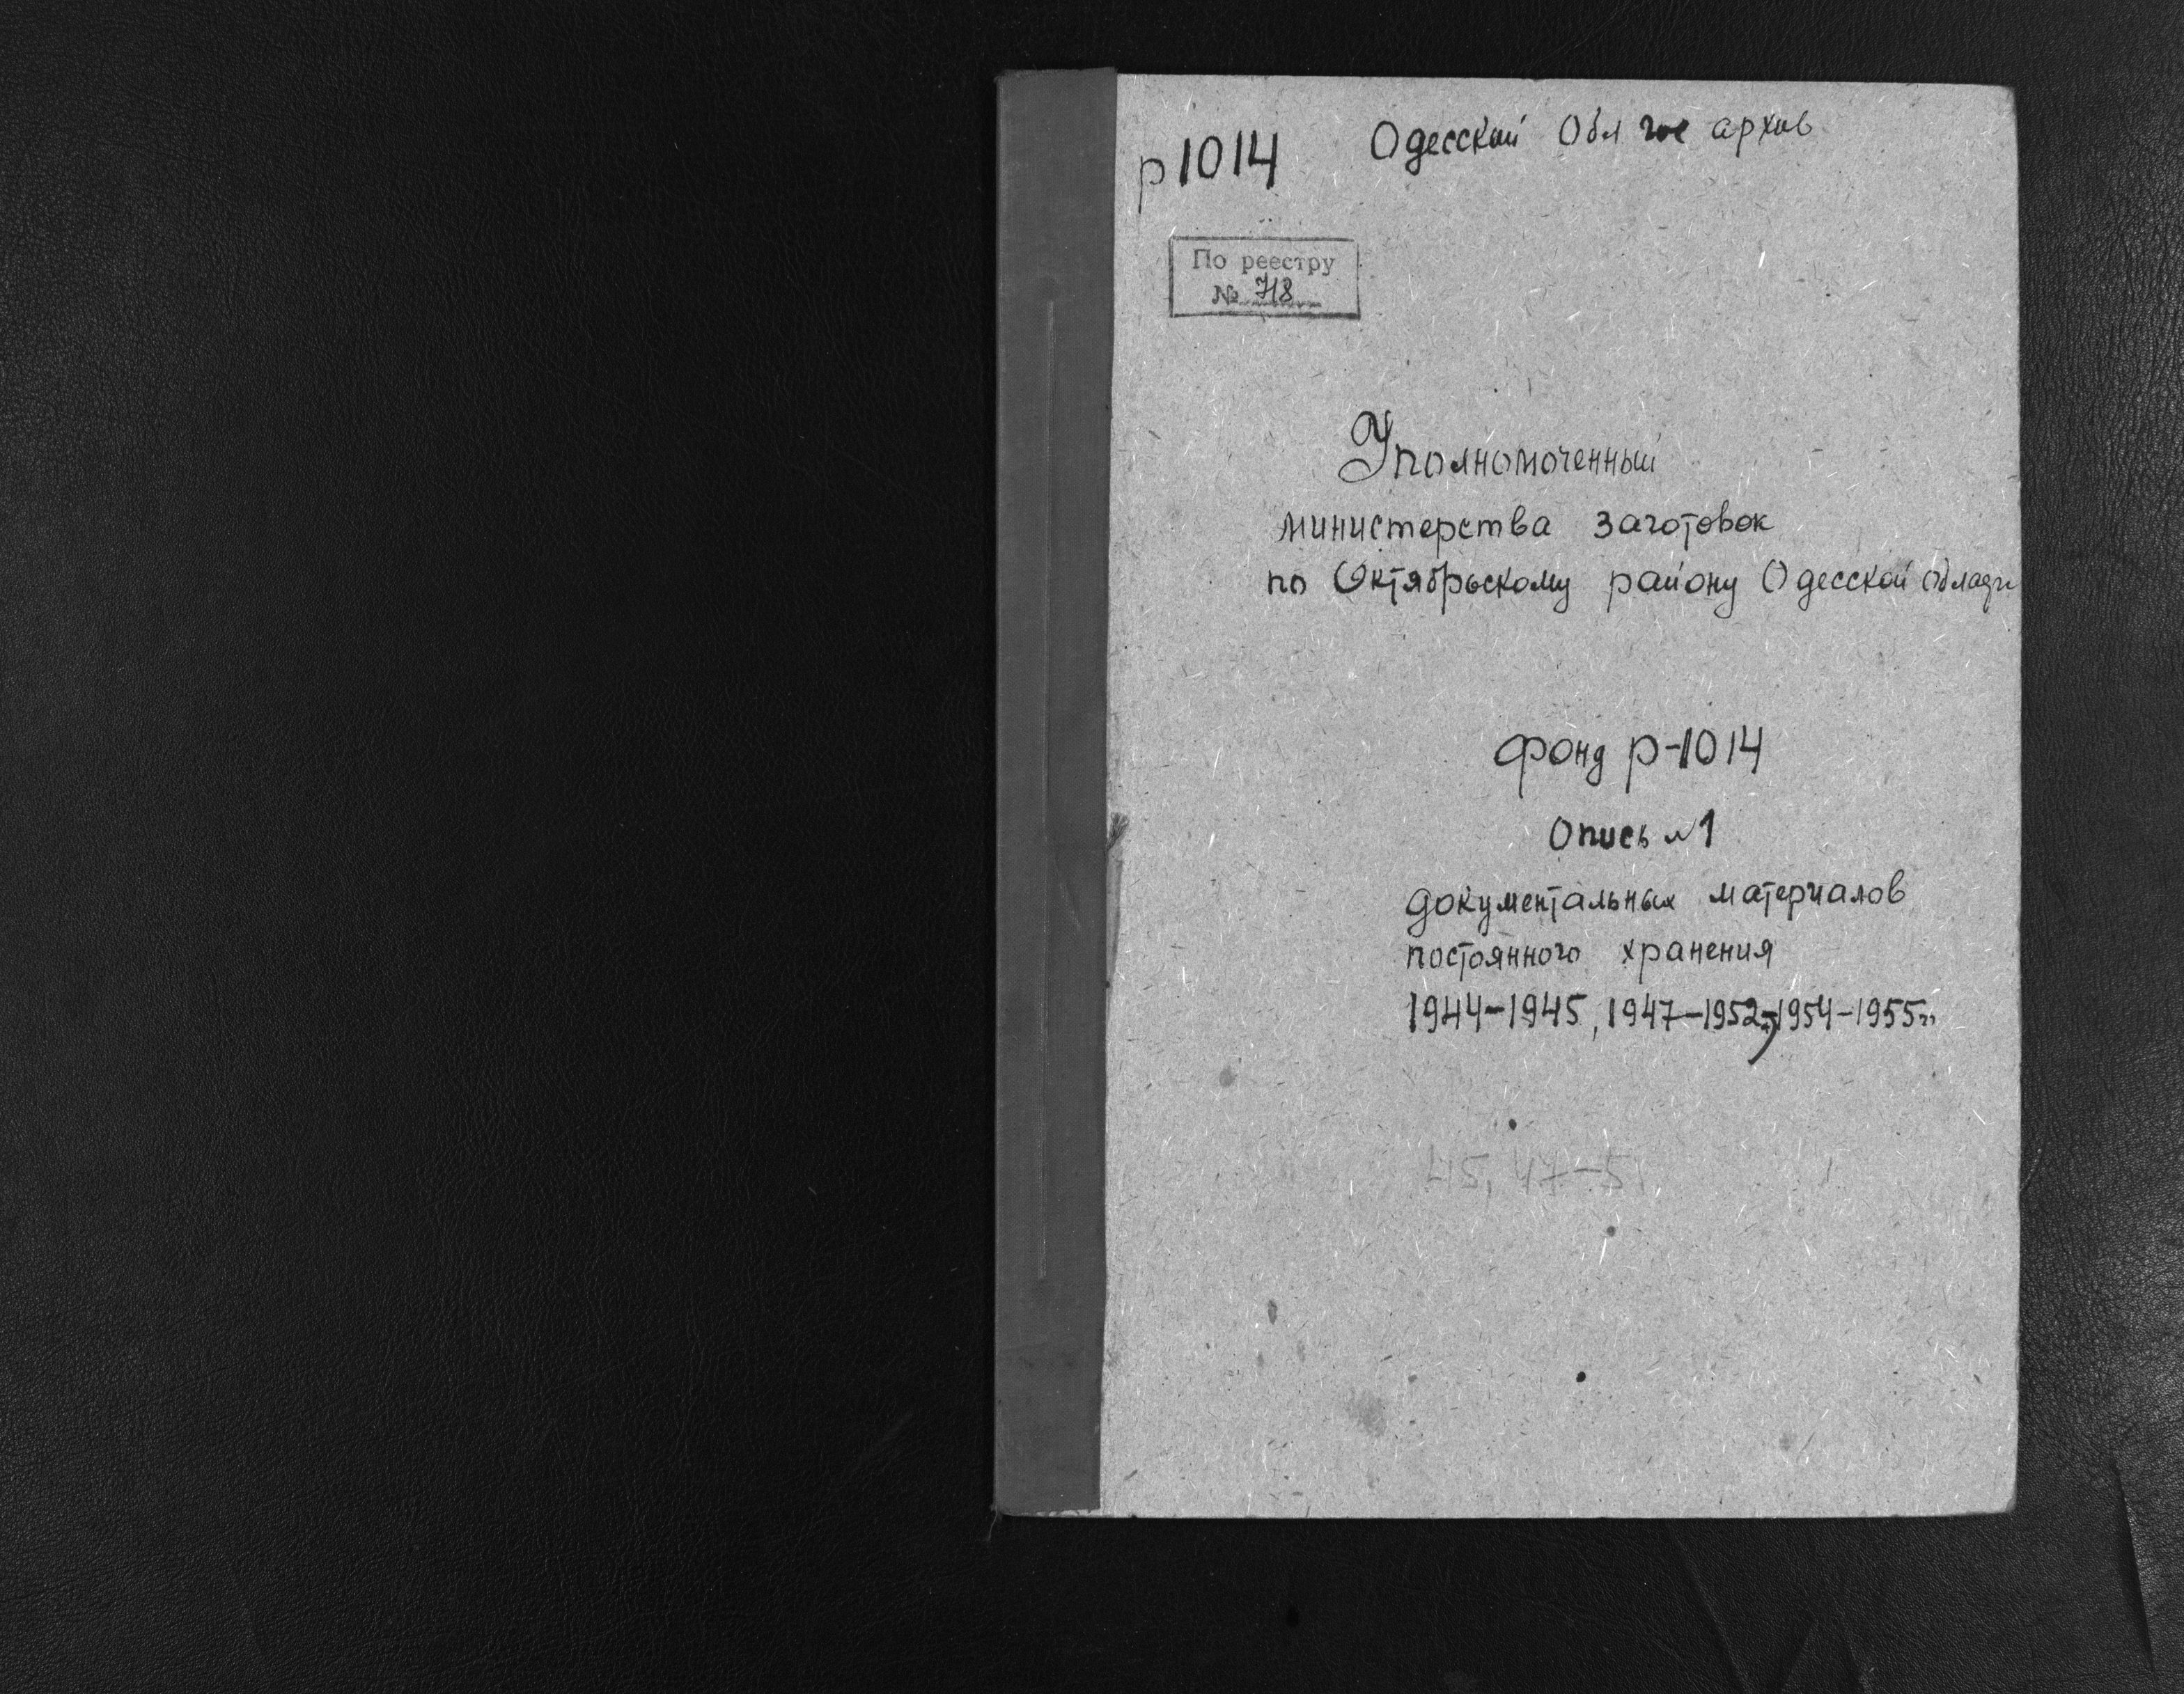 р1014
Одесский Обл гос архив
По реестру
№ 718
Уполномоченный
министерства заготовок
по Октябрьскому району Одесской области
Фонд р-1014
Опись №1
документальных материалов
постоянного хранения
1944-1945, 1947-1952, 1954-1955гг
45, 47-5